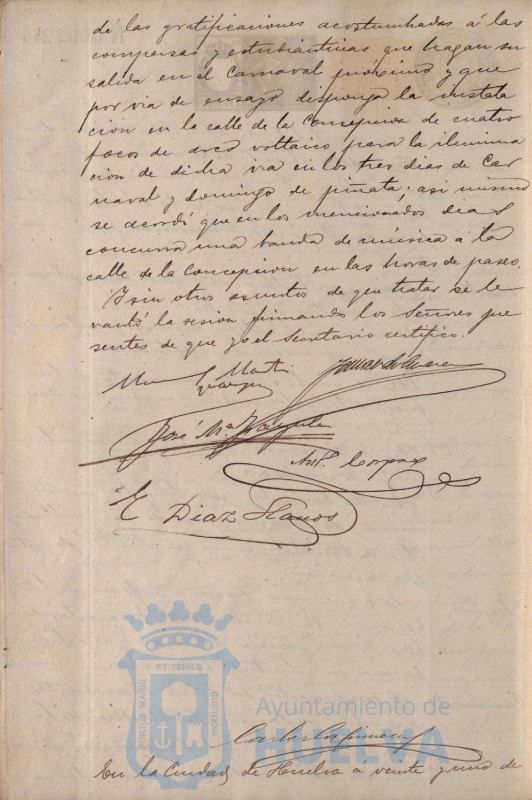 de las gratificaciones acostumbradas á las
comparsas y estudiantinas que hagan su
salida en el Carnaval próximo y que
por via de ensayo disponga la instala
ción en la calle de la Concepción de cuatro
focos de arco voltaico para la ilumina
ción de dicha via en los tres dias de Car
naval y domingo de piñata; asi mismo
se acordó que en los mencionados dias
concurra una banda de música á la
calle de la Concepcion en las horas de paseo.
Y sin otros asuntos de que tratar se le
vantó la sesion firmando los Señores pre
sentes de que yo el Secretario certifico.
José Mª
Antº Corpas
E Diaz Llanos
ET TERRÆ
PORTUS MARIS
CUSTODIA
Ayuntamiento de
HUELVA
En la Ciudad de Huelva a veinte y uno de